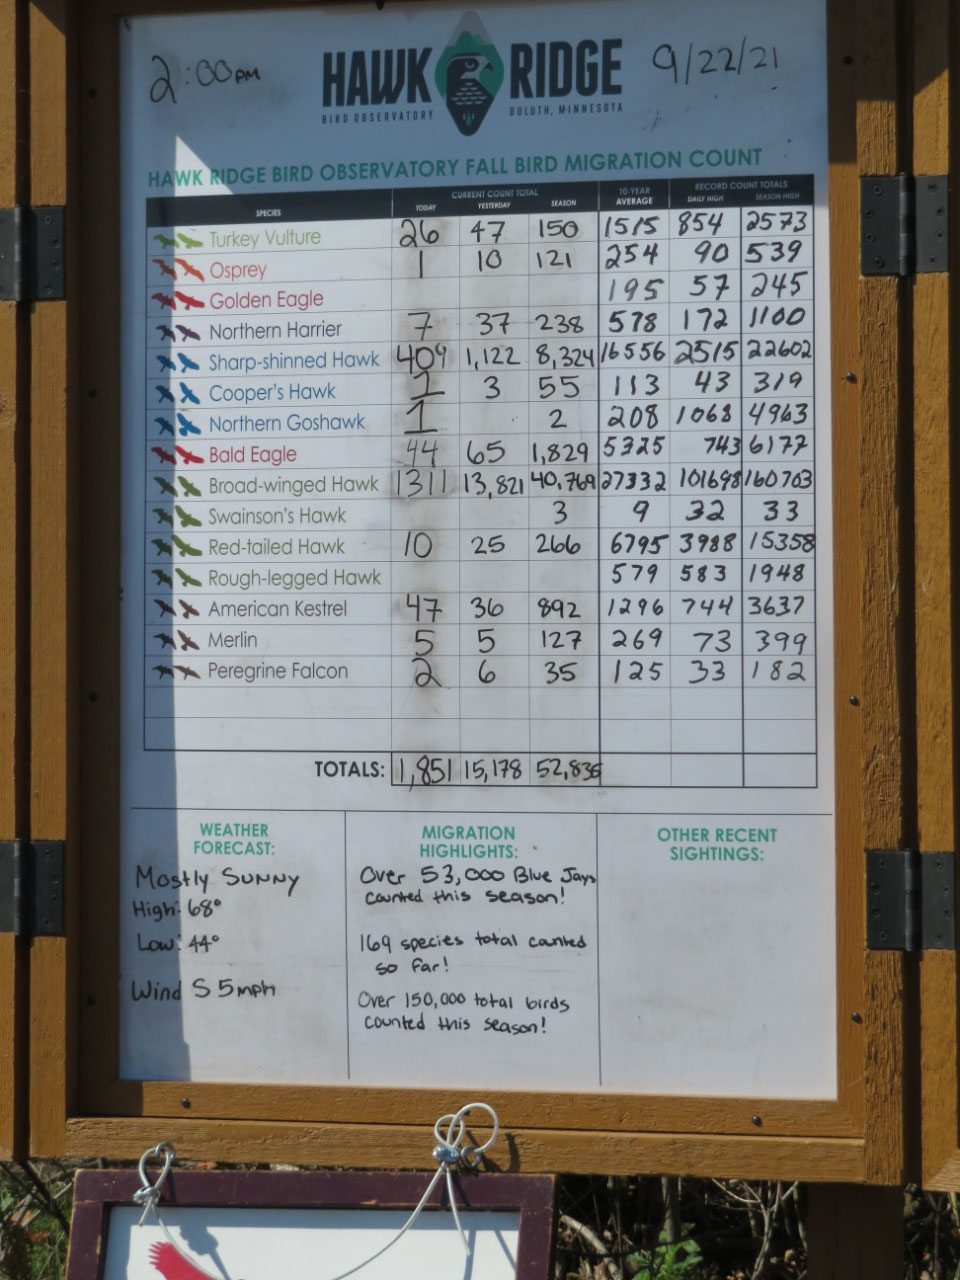 2:00PM
HAWK RIDGE
BIRD OBSERVATORY DULUTH, MINNESOTA
9/22/21
HAWK RIDGE BIRD OBSERVATORY FALL BIRD MIGRATION COUNT
CURRENT COUNT TOTAL 10-YEAR AVERAGE RECORD COUNT TOTALS
SPECIES TODAY YESTERDAY SEASON DAILY HIGH SEASON HIGH
Turkey Vulture 26 47 150 1515 854 2573
Osprey 1 10 121 254 90 539
Golden Eagle 195 57 245
Northern Harrier 7 37 238 578 172 1100
Sharp-shinned Hawk 409 1,122 8,324 16556 2515 22602
Cooper's Hawk 3 55 113 43 319
Northern Goshawk 1 2 208 1068 4963
Bald Eagle 44 65 1,829 5325 743 6177
Broad-winged Hawk 1311 13,821 40,769 27332 101698 160703
Swainson's Hawk 3 9 32 33
Red-tailed Hawk 10 25 266 6795 3988 15358
Rough-legged Hawk 579 583 1948
American Kestrel 47 36 892 1296 744 3637
Merlin 5 5 127 269 73 399
Peregrine Falcon 2 6 35 125 33 182
TOTALS: 1,851 15,178 52,836
WEATHER
FORECAST:
Mostly Sunny
High: 68°
Low: 44°
Wind S 5mph
MIGRATION
HIGHLIGHTS:
Over 53,000 Blue Jays
counted this season!
169 species total counted
so far!
Over 150,000 total birds
counted this season!
OTHER RECENT
SIGHTINGS: